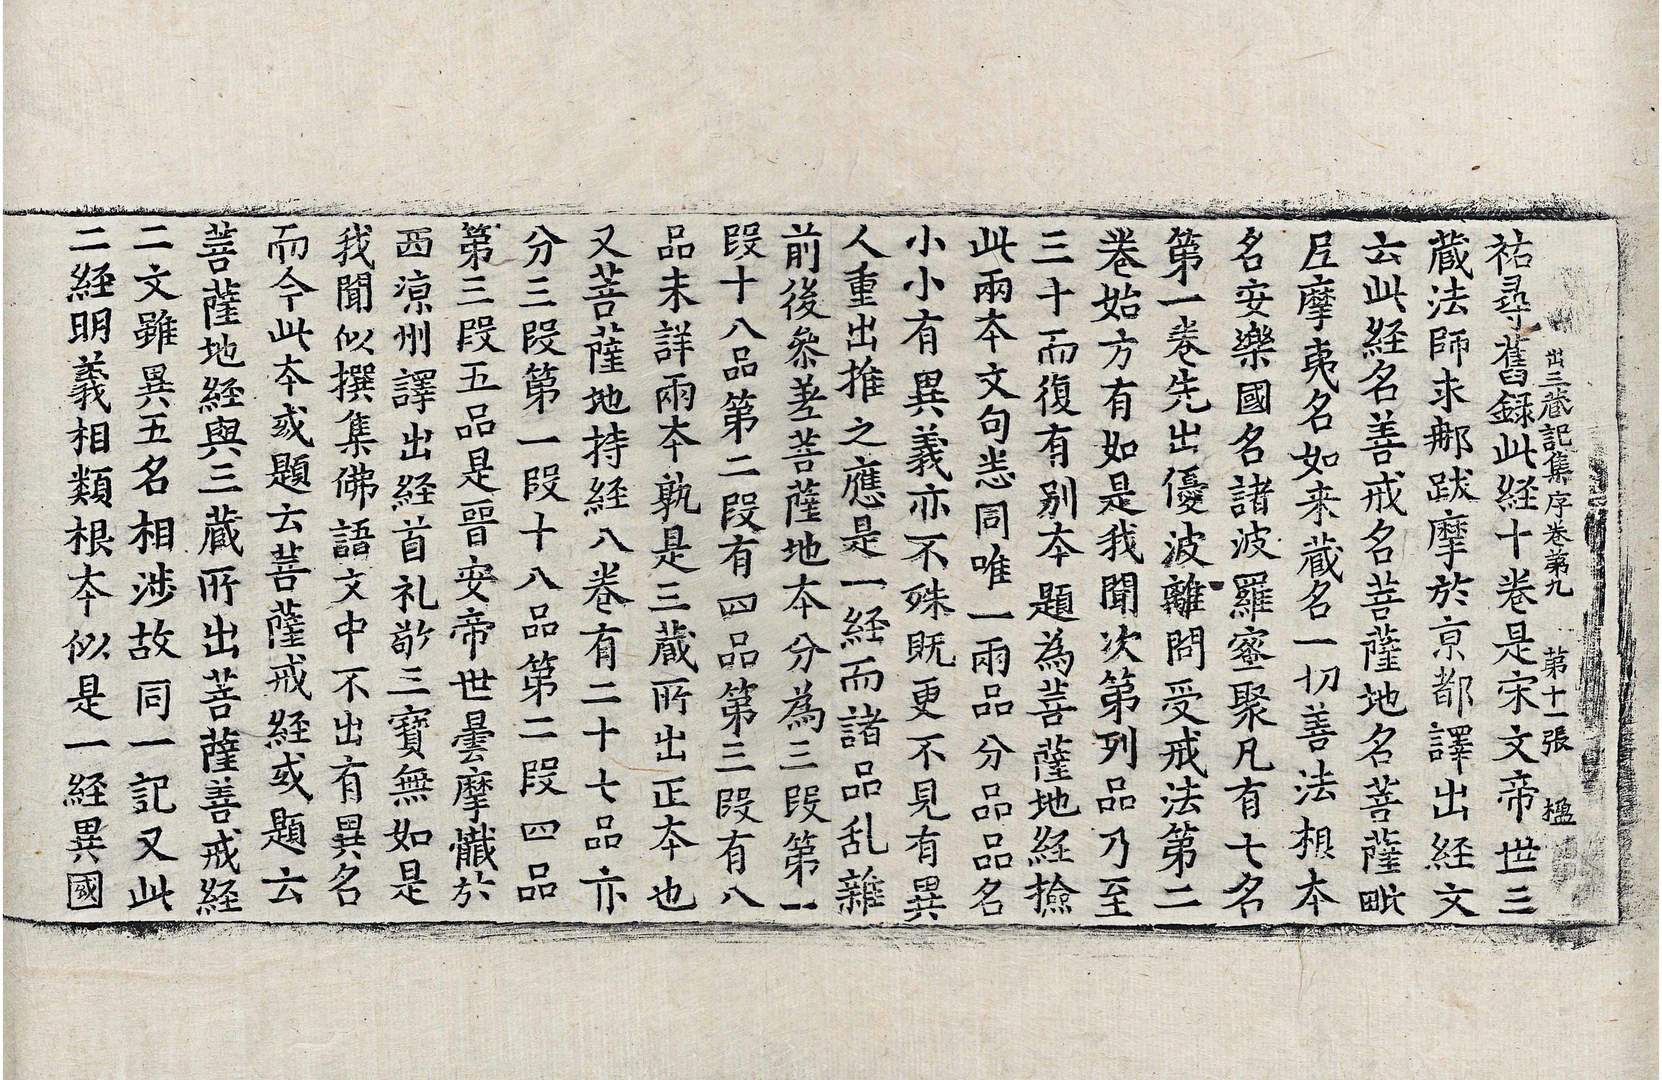 出三蔵記集序巻第九　第十一張　楹
祐尋舊録此経十巻是宋文帝世三
蔵法師求郍跋摩於京都譯出経文
云此経名善戒名菩薩地名菩薩毗
尼摩夷名如来蔵名一切善法根本
名安樂國名諸波羅蜜聚凡有七名
第一巻先出優波離問受戒法第二
巻始方有如是我聞次第列品乃至
三十而復有别本題為菩薩地経撿
此兩本文句悉同唯一兩品分品品名
小小有異義亦不殊既更不見有異
人重出推之應是一経而諸品乱雜
前後叅差菩薩地本分為三段第一
段十八品第二段有四品第三段有八
品未詳兩本孰是三蔵所出正本也
又菩薩地持経八巻有二十七品亦
分三段第一段十八品第二段四品
第三段五品是晉安帝世曇摩懺於
西涼州譯出経首礼敬三寶無如是
我聞似撰集佛語文中不出有異名
而今此本或題云菩薩戒経或題云
菩薩地経與三蔵所出菩薩善戒経
二文雖異五名相涉故同一記又此
二経明義相類根本似是一経異國